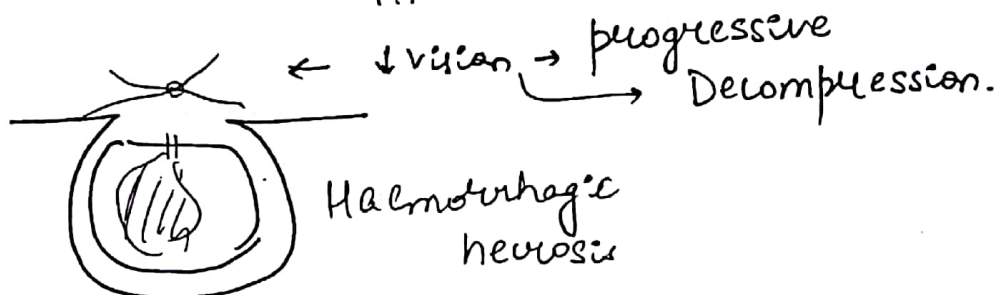 ↓ Vision → progressive
Decompression.
Haemorrhagic
necrosis